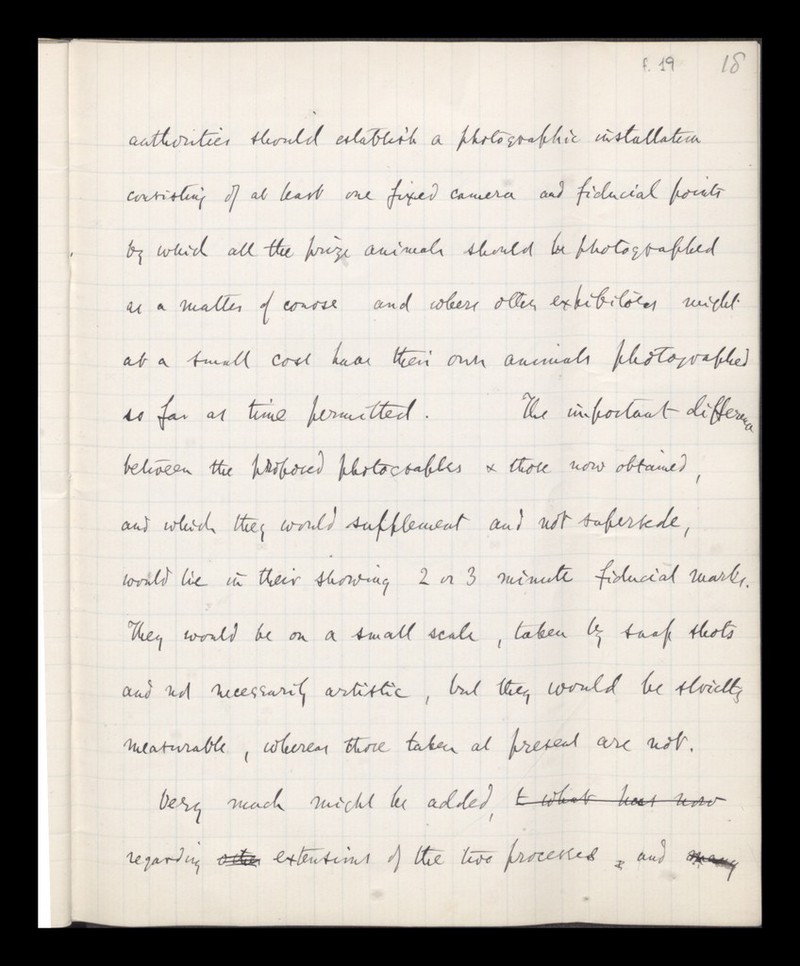 f. 19 18
authorities should establish a photographic installation
consisting of at least one fixed camera and fiducial points
by which all the prize animals should be photographed
as a matter of course and where other exhibitors might
at a small cost have their own animals photographed
so far as time permitted. The important difference
between the proposed photographs & those now obtained,
and which they would supplement and not supersede,
would lie in their showing 2 or 3 minute fiducial marks.
They would be on a small scale, taken by snap shots
and not necessarily artistic, but they would be strictly
measurable, whereas those taken at present are not.
Very much might be added, to what has now
regarding other extensions of the two processes, and many